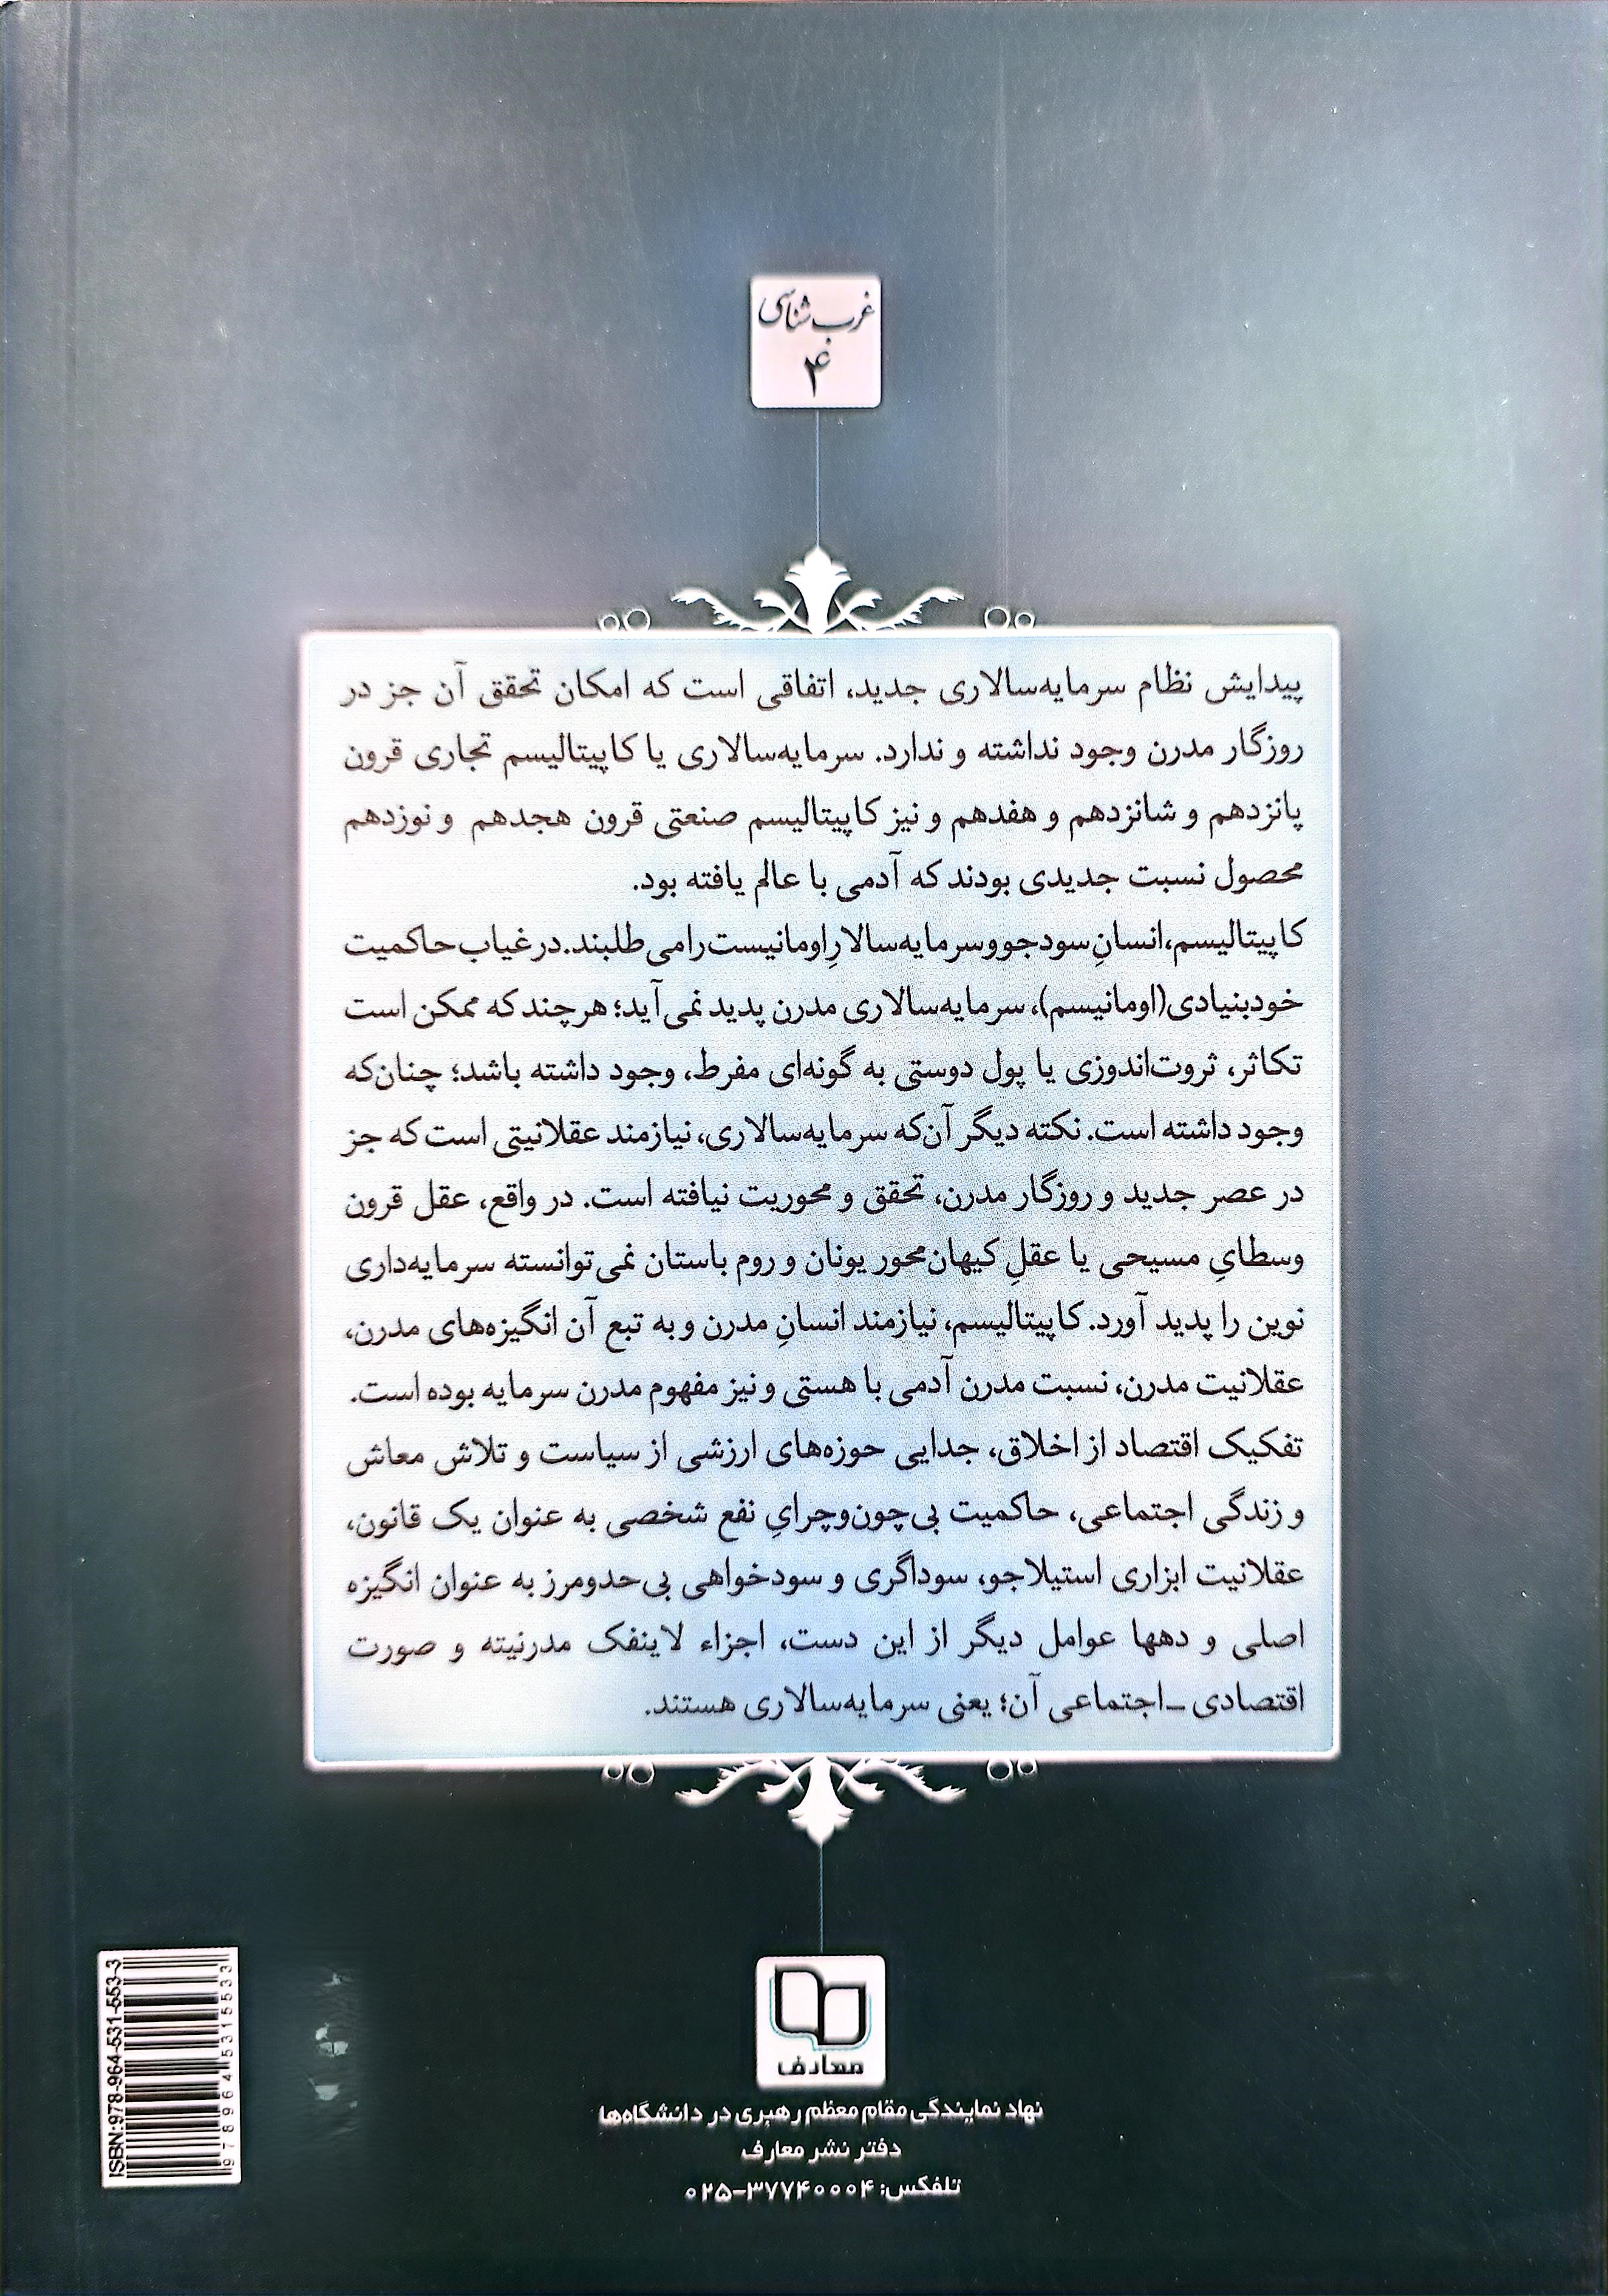 غرب‌شناسی
۴
پیدایش نظام سرمایه‌سالاری جدید، اتفاقی است که امکان تحقق آن جز در
روزگار مدرن وجود نداشته و ندارد. سرمایه‌سالاری یا کاپیتالیسم تجاری قرون
پانزدهم و شانزدهم و هفدهم و نیز کاپیتالیسم صنعتی قرون هجدهم و نوزدهم
محصول نسبت جدیدی بودند که آدمی با عالم یافته بود.
کاپیتالیسم، انسانِ سودجو و سرمایه‌سالارِ اومانیست را می طلبند. در غیاب حاکمیت
خودبنیادی (اومانیسم)، سرمایه‌سالاری مدرن پدید نمی‌آید؛ هر چند که ممکن است
تکاثر، ثروت‌اندوزی یا پول دوستی به گونه‌ای مفرط، وجود داشته باشد؛ چنان‌که
وجود داشته است. نکته دیگر آن‌که سرمایه‌سالاری، نیازمند عقلانیتی است که جز
در عصر جدید و روزگار مدرن، تحقق و محوریت نیافته است. در واقع، عقل قرون
وسطایِ مسیحی یا عقلِ کیهان‌محور یونان و روم باستان نمی‌توانسته سرمایه‌داری
نوین را پدید آورد. کاپیتالیسم، نیازمند انسانِ مدرن و به تبع آن انگیزه‌های مدرن،
عقلانیت مدرن، نسبت مدرن آدمی با هستی و نیز مفهوم مدرن سرمایه بوده است.
تفکیک اقتصاد از اخلاق، جدایی حوزه‌های ارزشی از سیاست و تلاش معاش
و زندگی اجتماعی، حاکمیت بی‌چون‌وچرایِ نفع شخصی به عنوان یک قانون،
عقلانیت ابزاری استیلاجو، سوداگری و سودخواهی بی‌حدومرز به عنوان انگیزه
اصلی و دهها عوامل دیگر از این دست، اجزاء لاینفک مدرنیته و صورت
اقتصادی ـ اجتماعی آن؛ یعنی سرمایه‌سالاری هستند.
معارف
نهاد نمایندگی مقام معظم رهبری در دانشگاه‌ها
دفتر نشر معارف
تلفکس: ۳۷۷۴۰۰۰۴-۰۲۵
ISBN:978-964-531-553-3
9789645315533